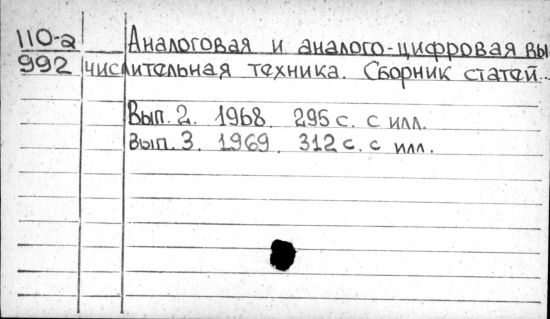 110-а Аналоговая и аналого-цифровая вы
992 числительная техника. Сборник статей..
Вып. 2. 1968. 295 с. с илл.
Вып. 3. 1969. 312 с. с илл.